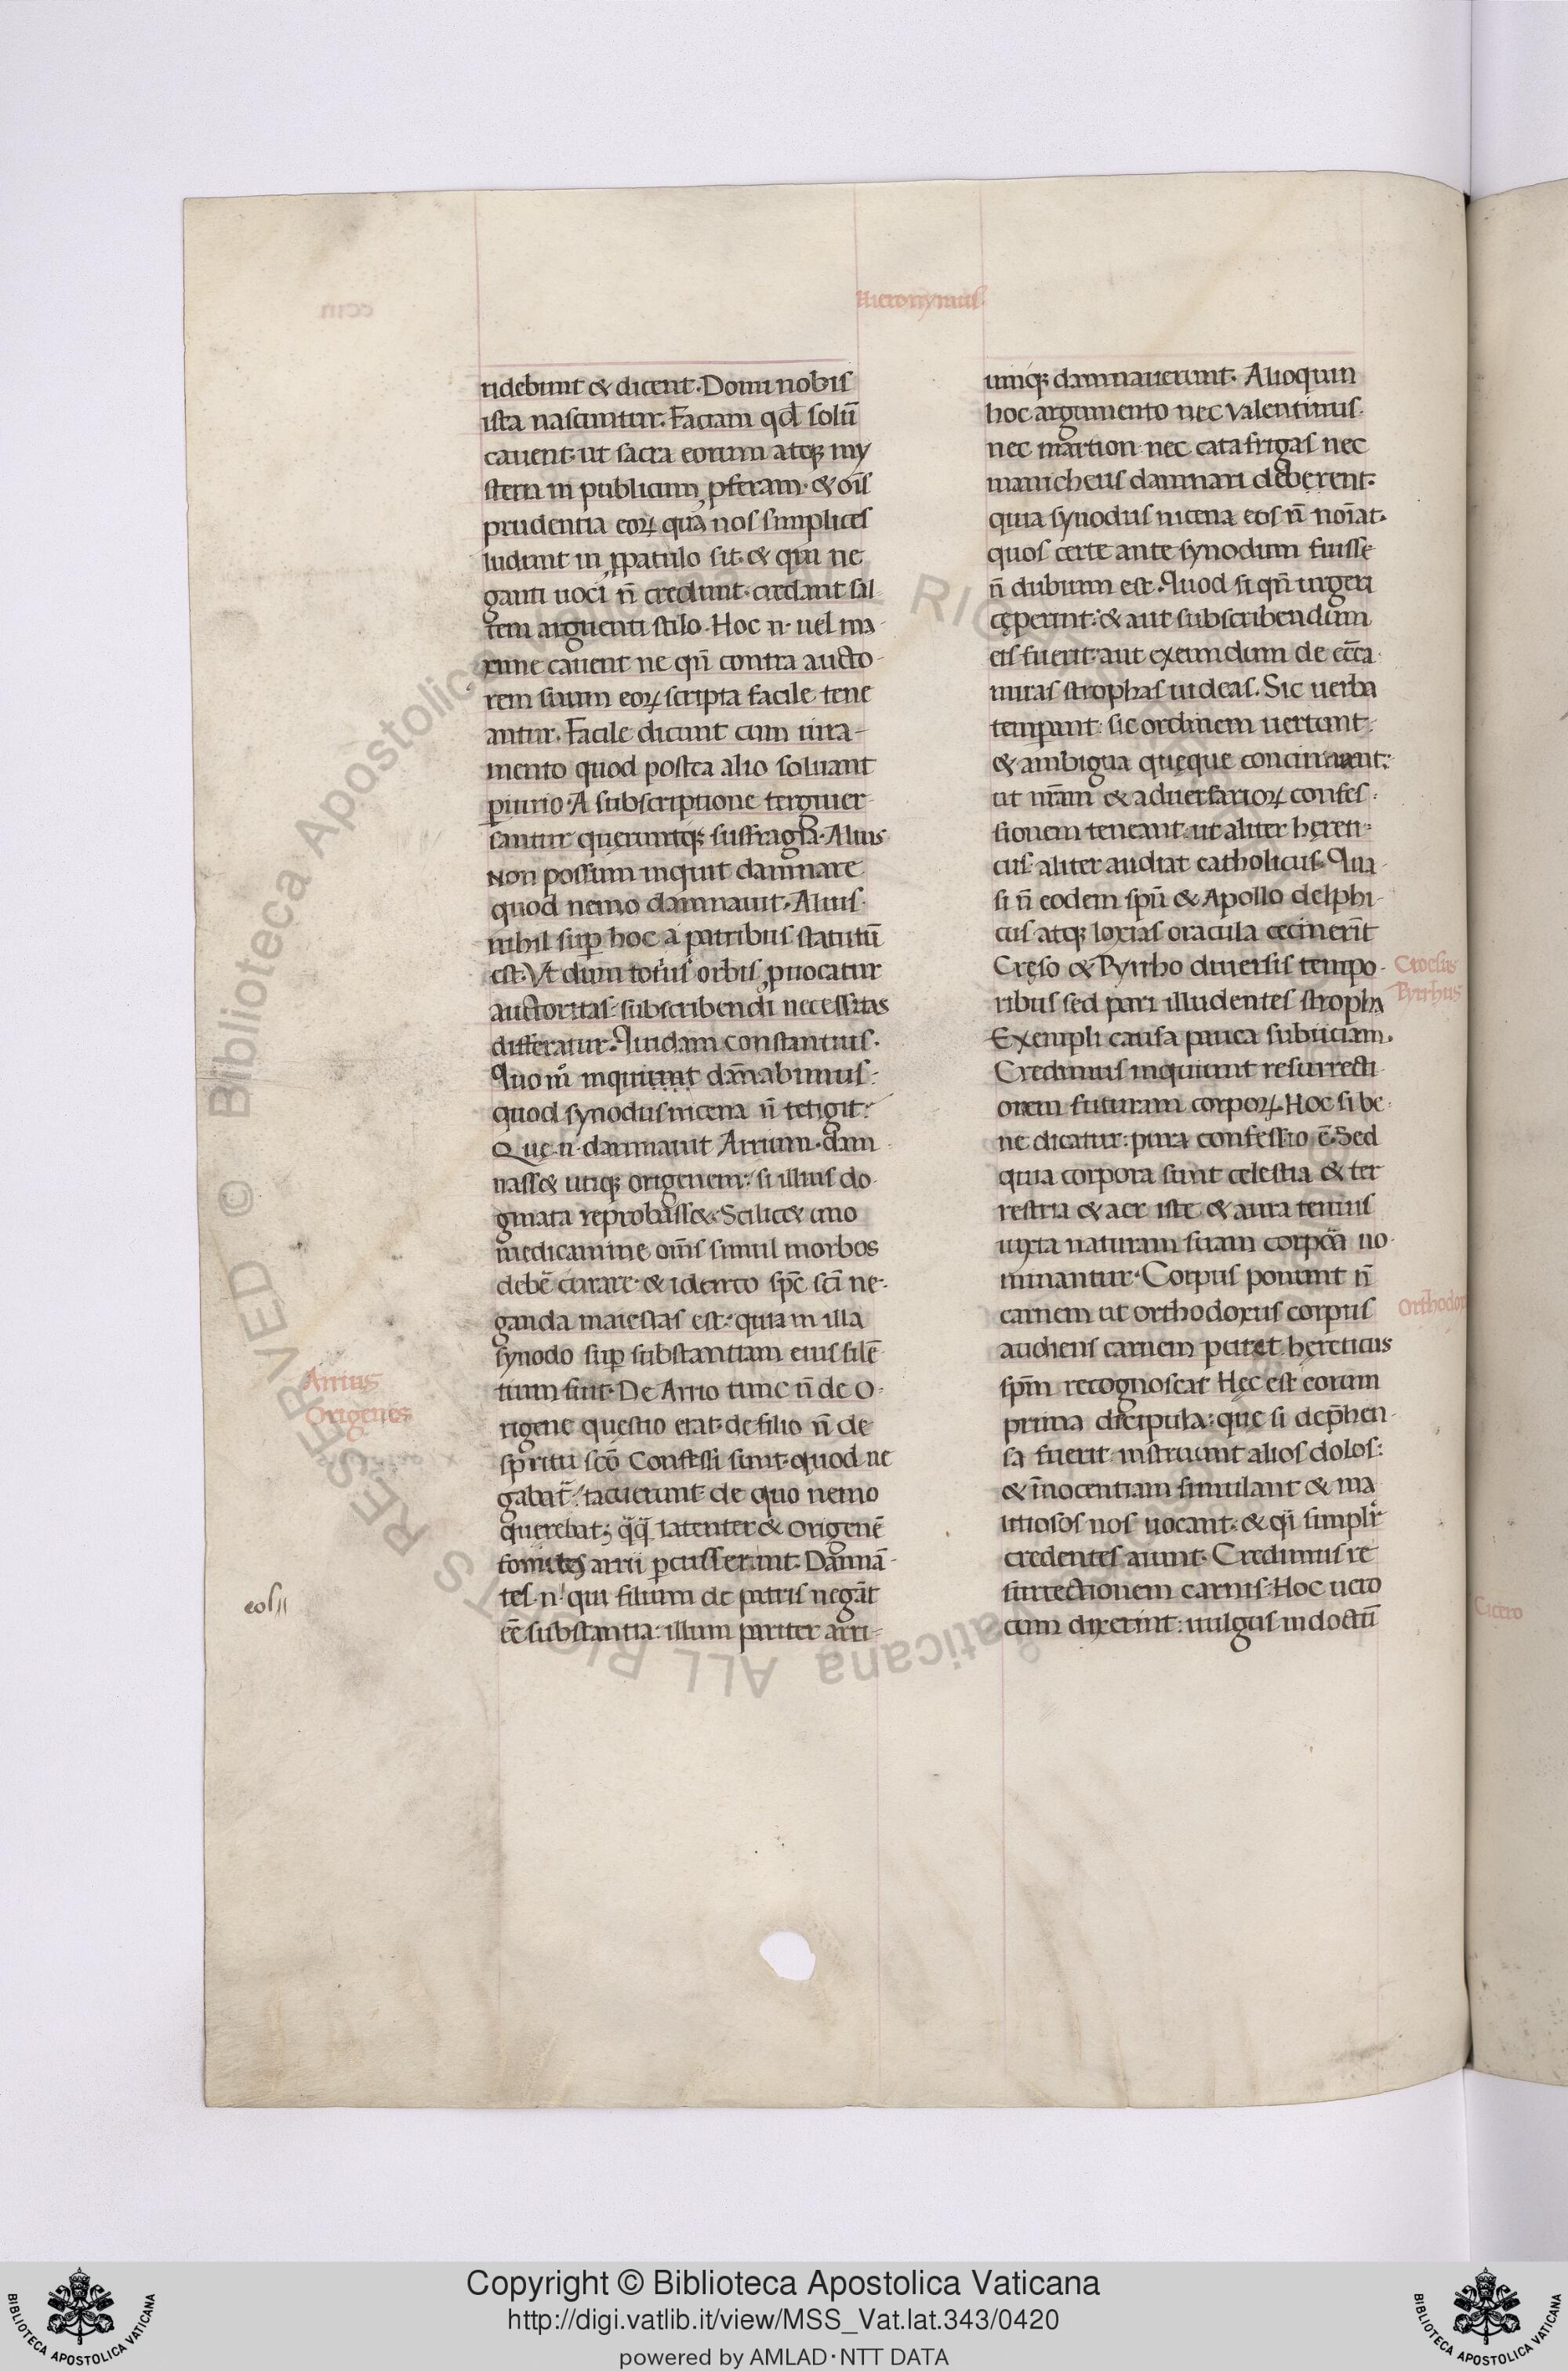 Hieronymus
ridebunt & dicent. Domi nobis
ista nascuntur. Faciam qd̄ solū
cauent ut sacra eorum atqꝫ my
steria in publicum ꝓferam. & oīs
prudentia eoꝝ quā nos simplices
ludunt in ꝓpatulo sit. & qui ne
ganti uoci n̄ credunt. credant sal
tem arguenti stilo. Hoc .n. uel ma-
xime cauent ne qn̄ contra aucto-
rem suum eoꝝ scripta facile tene
antur. Facile dicunt cum iura-
mento quod postea alio soluant
ꝑiurio. A subscriptione tergiuer-
santur queruntqꝫ suffragia. Alius
Non possum inquit damnare
quod nemo damnauit. Alius.
nihil suꝑ hoc a patribus statutū
est. Vt dum totius orbis ꝓuocatur
auctoritas: subscribendi necessitas
differatur. Quidam constantius.
Quomº inquiunt dānabimus:
quod synodus nicena n̄ tetigit:
Quę .n. damnauit Arrium. dam-
nass& utiqꝫ origenem: si illius do-
gmata reprobass&. Scilic& uno
medicamine om̄s simul morbos
debē curare. & idcirco spc̄ sc̄i ne-
ganda maiestas est: quia in illa
synodo suꝑ substantiam eius silē-
tium fuit. De Arrio tunc n̄ de O-
rigene questio erat. de filio n̄ de
spiritu sc̄o Confessi sunt quod ne
gabat̄: tacuerunt de quo nemo
querebat; q̄q̄ latenter & Origenē
fontes arrii ꝑcusserunt. Damnā-
tes .n. qui filium de patris negāt
eē substantia: illum pariter arri-
Arrius
Origenes
eos//
umqꝫ damnauerunt. Alioquin
hoc argumento nec valentinus.
nec martion nec catafrigas nec
manicheus damnari deberent.
quia synodus nicena eos n̄ noīat.
quos certe ante synodum fuisse
n̄ dubium est. Quod si qn̄ urgeri
cęperint: & aut subscribendum
eis fuerit: aut exeundum de ecc̄a
miras strophas uideas. Sic uerba
temperant: sic ordinem uertunt:
& ambigua quęque concinnant:
ut nr̄am & aduersarioꝝ confes-
sionem teneant: ut aliter hęreti-
cus aliter audiat catholicus. Qua
si n̄ eodem spū & Apollo delphi-
cus atqꝫ loxias oracula cecinerit
Cręso & Pyrrho diuersis tempo-
ribus sed pari illudentes stropha
Exempli causa pauca subiiciam.
Credimus inquiunt resurrecti
onem futuram corpoꝝ. Hoc si be-
ne dicatur: pura confessio ē. Sed
quia corpora sunt celestia & ter
restria & aer iste & aura tenuis
iuxta naturam suam corpora no-
minantur. Corpus ponunt n̄
carnem ut orthodoxus corpus
audiens carnem putet hęreticus
spm̄ recognoscat Hęc est eorum
prima decipula: que si dep̄hen-
sa fuerit instruunt alios dolos:
& īnocentiam simulant & ma
litiosos nos uocant. & q̄i simplīr
credentes aiunt. Credimus re
surrectionem carnis. Hoc uero
cum dixerint: uulgus indoctū
Croesus
Pyrrhus
Orthodox
Cicero
Copyright © Biblioteca Apostolica Vaticana
http://digi.vatlib.it/view/MSS_Vat.lat.343/0420
powered by AMLAD·NTT DATA